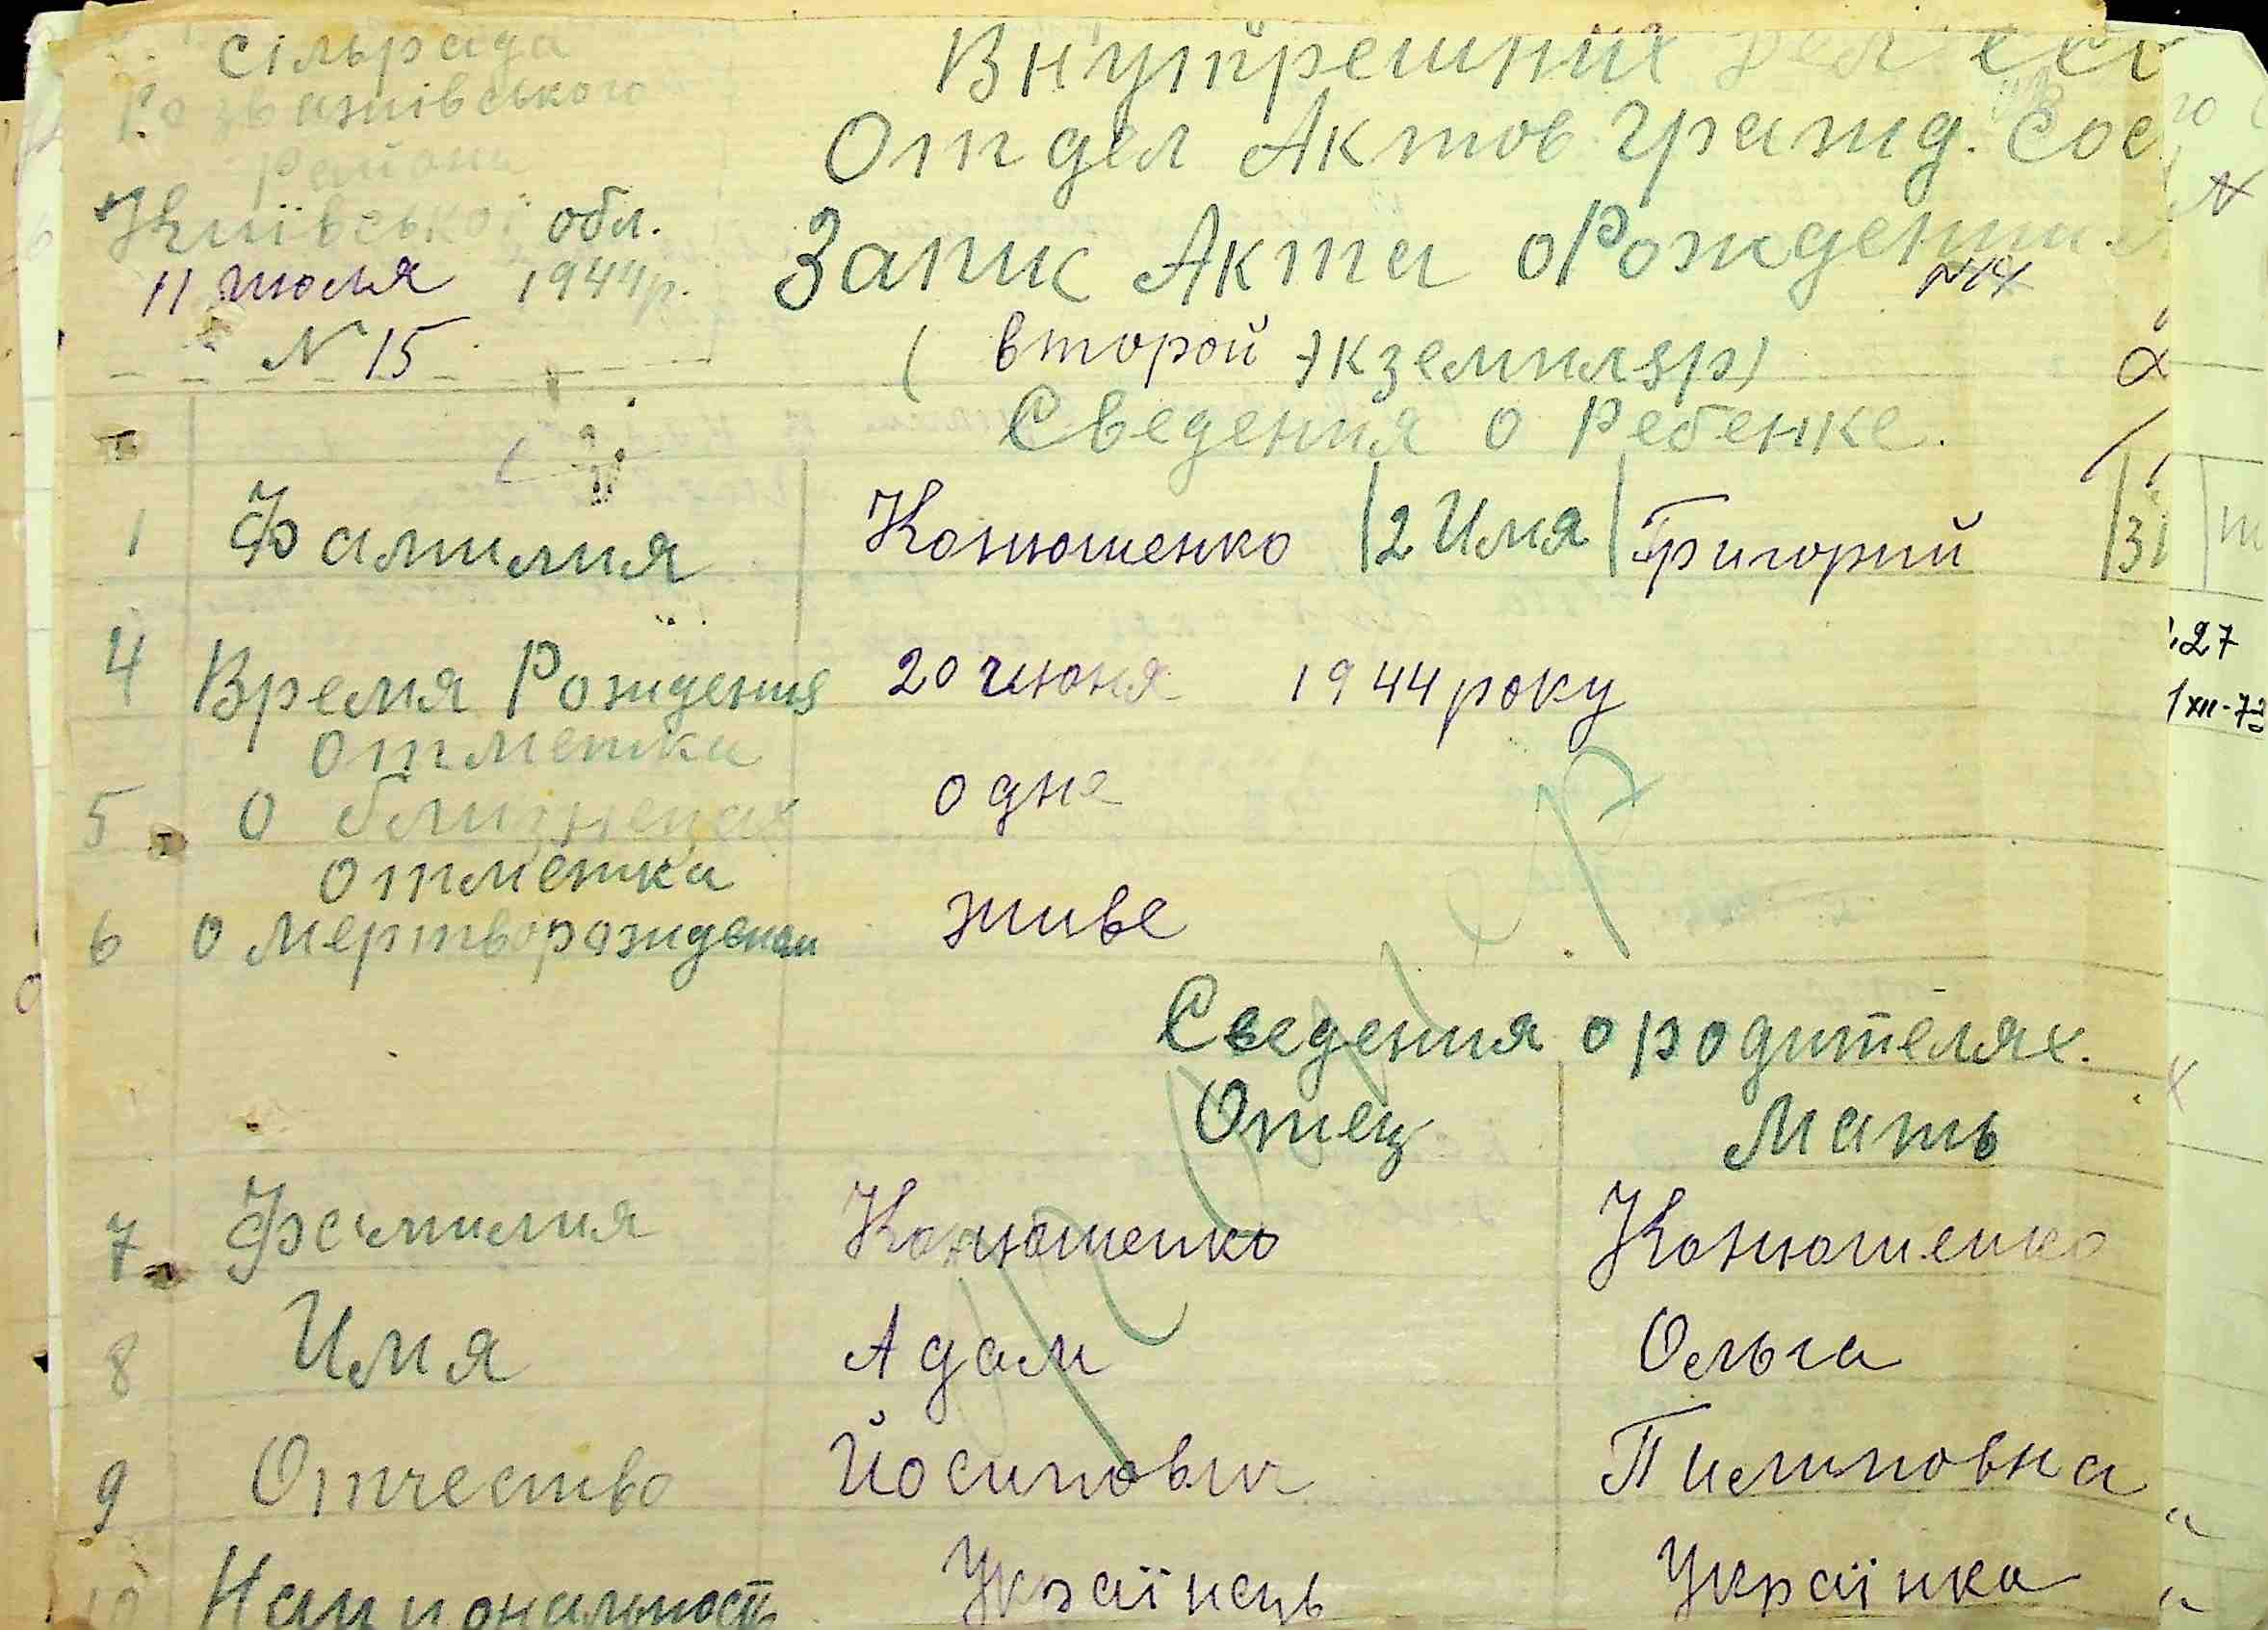 сільрада
Розважівського
Района
Київської обл.
11 июля 1944р.
N 15
Внутрешних дел
Отдел Актов гражд. Сос
Запис Акта о Рождении
N14
(второй экземпляр)
Сведения о Ребенке.
1 Фамилия Конюшенко 2 Имя Григорий 3
4 Время Рождения 20 июня 1944 року
отметка
5 о близнецах одне
отметка
6 о мертворождении живе
27
1 XII-73
Сведения о родителях.
Отец Мать
7 Фамилия Конюшенко Конюшенко
8 Имя Адам Ольга
9 Отчество Йосипович Пилиповна
10 Национальность Українець Українка